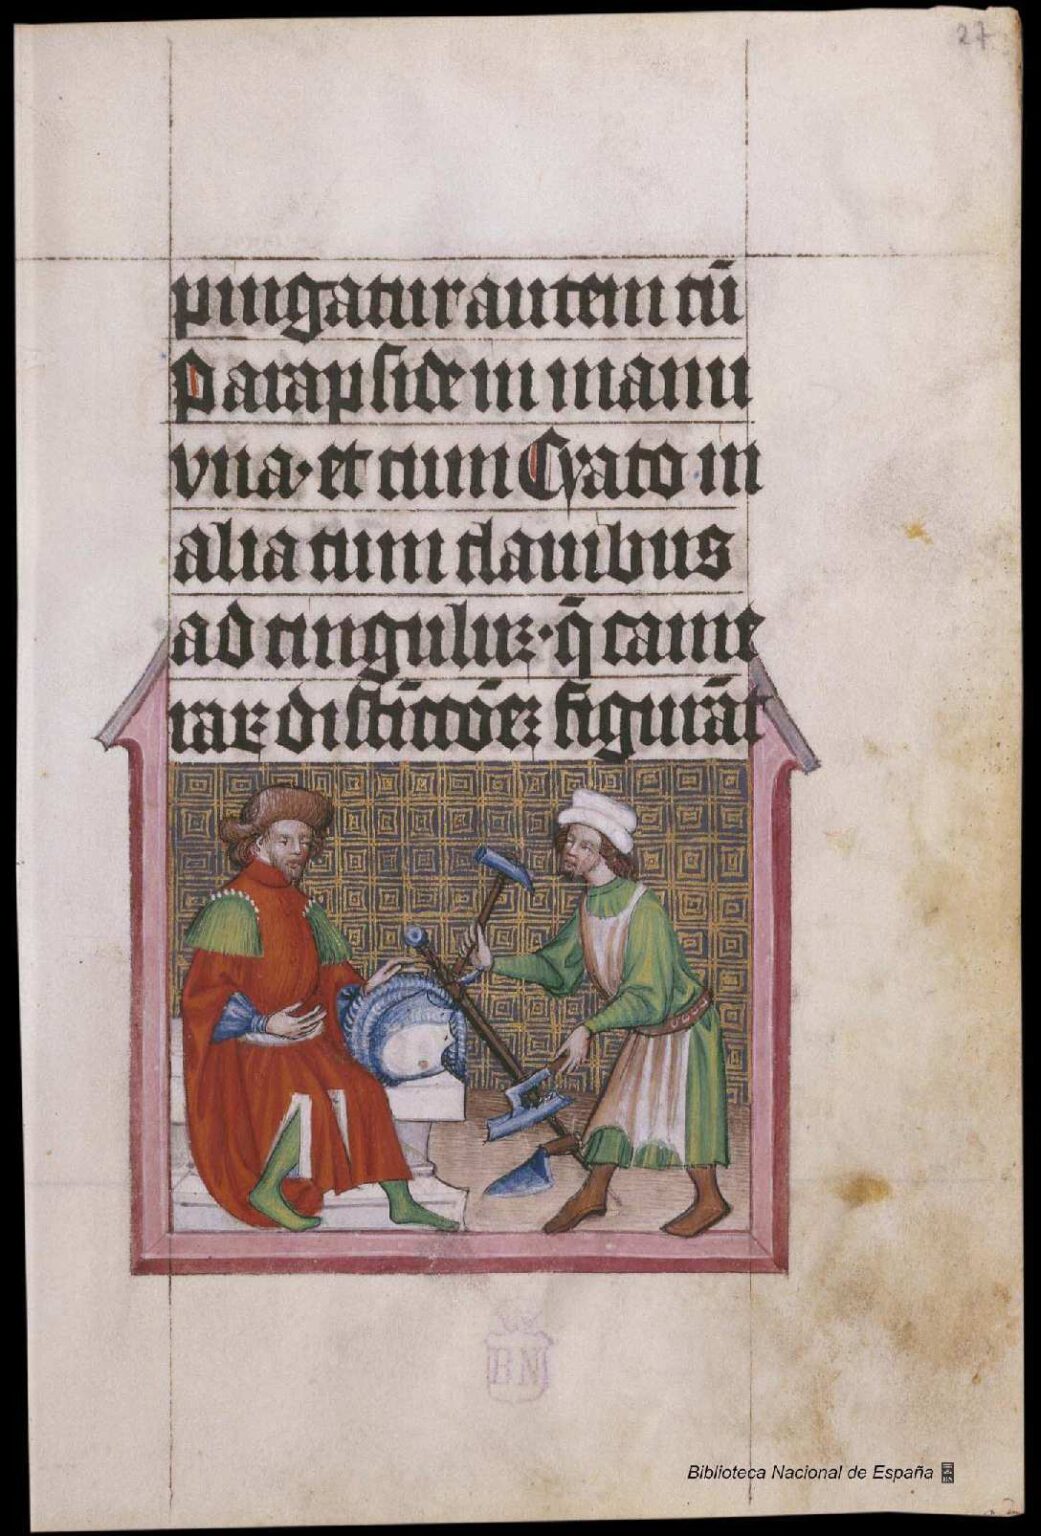 27
pingatur autem cū
Parapside in manu
vna· et cum Cyato in
alia cum clauibus
ad cinguluꝫ· q̄ came
raꝝ distīccōeꝫ figurāt
BN
Biblioteca Nacional de España